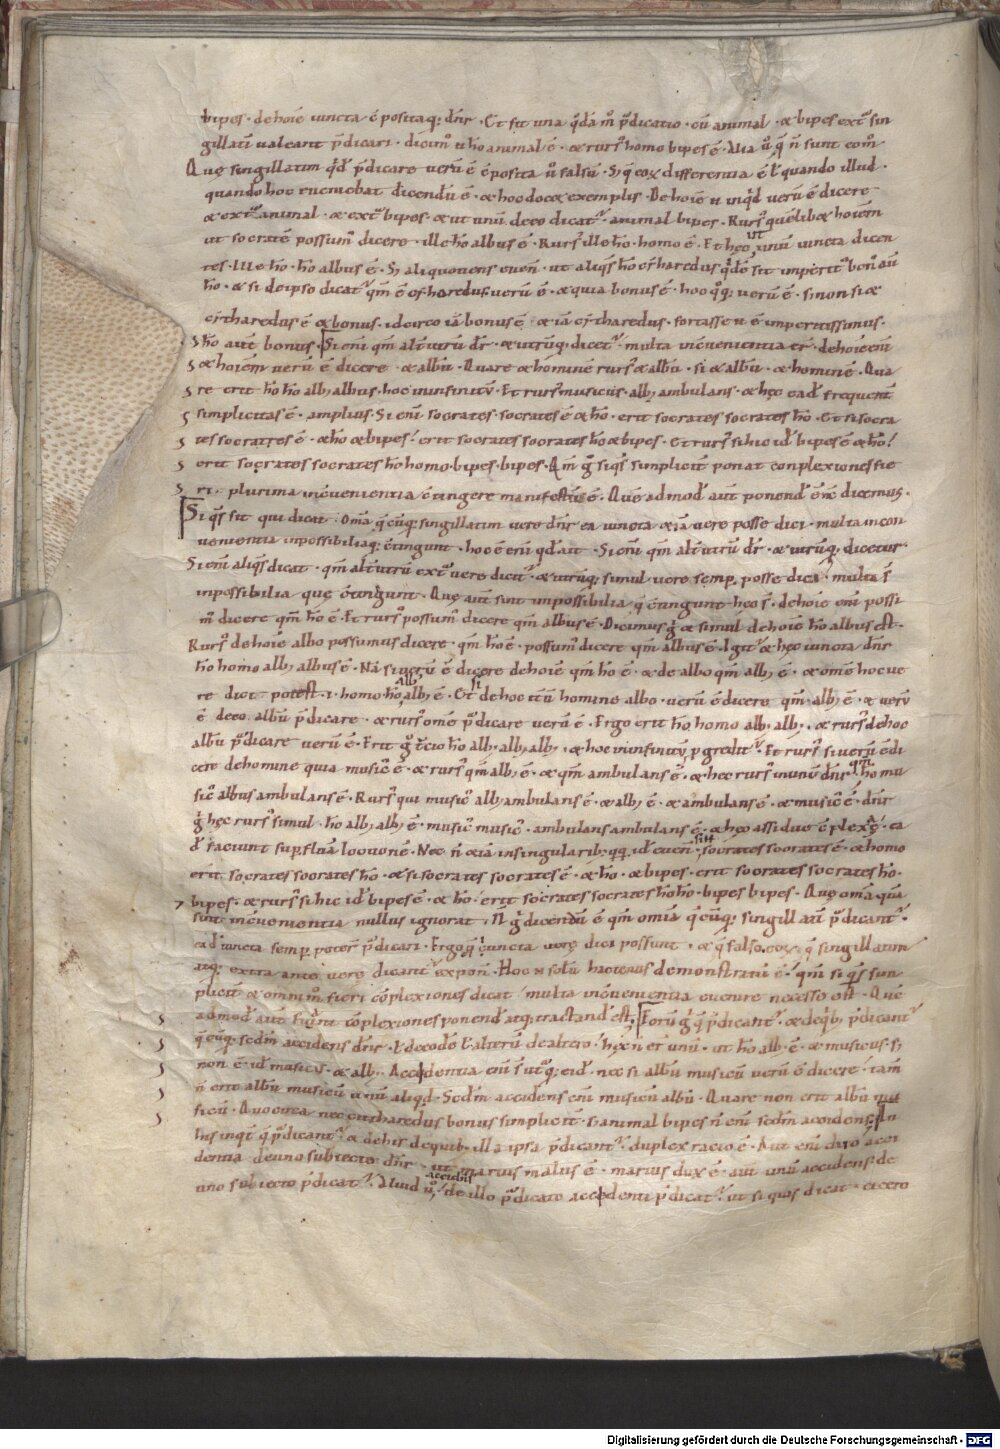 bipes · de hoīe iuncta ē positaq; dñr · Et fit una q̄dā m̄ p̄dicatio · cū animal · & bipes extͣ sin
gillatī ualeant p̄dicari · dicim᷒ u ho animal ē · & rurs᷒ homo bipes ē · Alia u᷒ q̄ ñ sunt com̄
Quę singillatim qͥdē p̄dicare uerū ē cposita u᷒ falsū · Sꝫ q̄ eoꝝ differentia ē ł quando illud ·
quando hoc eueniebat dicendū ē · & hoc docꝫ exemplis · De hoīe n inqͥd uerū ē dicere
& extͣ animal · & extͣ bipes · & ut unū deeo dicatͬ · animal bipes · Rurs᷒ quēlib& hoīem
ut socratē possum᷒ dicere · ille hō albus ē · Rurs᷒ ille hō · homo ē · Et hęc ut unū iuncta dicen
tes · Ille hō · hō albus ē · Sꝫ aliquotiens euen̄ · ut aliqͥs hō cytharedus qͥdē sit imperit᷒ bon᷒ aū
hō · & si deipso dicatͬ qm̄ ē cytharedus uerū ē · & quia bonus ē · hoc q̊q; uerū ē · si non si &
cytharedus ē & bonus · idcirco iā bonus ē & iā cytharedus · fortasse n ē imperitissimus ·
hō autē bonus · Si enī qm̄ altͬutrū dr̄ · & utrūq; dicetͬ · multa incuenientia er̄ · de hoīe enī
& hoīem uerū ē dicere · & albū · Quare & hominē rurs᷒ & albū · si & albū · & hominē · Qua
re erit hō hō alb; albus · hoc ininfinitū · Et rurs᷒ musicus · alb; ambulans · & hęc eadē frequent̄
simplicitas ē · amplius · Si enī socrates · socrates ē & hō · erit socrates socrates hō · Et si socra
tes socrates ē · & hō & bipes · erit socrates socrates hō & bipes · Et rurs᷒ si hic idē bipes ē & hō ·
erit socrates socrates hō homo · bipes · bipes · Qm̄ g̊ siqͥs simplicit̄ ponat conplexiones fie
ri · plurima incuenientia ctingere manifestū ē · Quē admodū aut̄ ponendū ē nc̄ dicemus ·
Si qͥs sit qui dicat · Omā q̄cūq; singillatim uere dñr ea uincta &iā uere posse dici · multa incon
uenientia inpossibiliaq; ctingunt · hoc ē enī qd̄ ait · Si enī qm̄ altͬutrū dr̄ · & utrūq; dicetur ·
Si enī aliqͥs dicat · qm̄ altͬutrū extͣ uere dicitͬ · & utrūq; simul uere semp posse dica · multa s̄
inpossibilia quę ctingunt · Quę aut̄ sunt impossibilia q̄ ctingunt hęc s̄ · de hoīe enī possu
m᷒ dicere qm̄ hō ē · Et rurs᷒ possum᷒ dicere qm̄ albus ē · Dicimus g̊ & simul de hoīe hō albus est ·
Rurs᷒ de hoīe albo possumus dicere · qm̄ hō ē · possum᷒ dicere qm̄ albus ē · Igitͬ & hęc iuncta dñr
hō homo alb; albus ē · Nā si uerū ē dicere de hoīe qm̄ hō ē · & de albo qm̄ alb; ē · & om̄e hoc ue
re dici potest · i · homo hō alb; alb; ē · Et si de hoc itū homine albo · uerū ē dicere qm̄ alb; ē · & uerū
ē deeo albū p̄dicare · & rurs᷒ om̄e p̄dicare uerū ē · Ergo erit hō homo alb; alb; · & rurs᷒ de hoc
albū p̄dicare uerū ē · Erit g̊ t̄cio hō alb; alb; alb; · & hoc ininfinitū pgreditͬ · Et rurs᷒ si uerū ē di
cere de homine quia music᷒ ē · & rurs᷒ qm̄ alb; ē · & qm̄ ambulans ē · & hęc rurs᷒ in unū dñr qm̄ homo mu
sic᷒ albus ambulans ē · Rurs᷒ qui music᷒ alb; ambulans ē · & alb; ē · & ambulans ē · & music᷒ ē · dñr
g̊ hęc rurs᷒ simul · hō alb; alb; ē · music᷒ music᷒ · ambulans ambulans ē · & hęc assidue cplexę · ea
dē faciunt supfluā locutionē · Nec ñ &iā insingularib; qq; idē euen̄ · si enī socrates socrates ē · & homo
erit socrates socrates hō · & si socrates socrates ē · & hō · & bipes · erit socrates socrates hō ·
bipes · & rurs᷒ si hic idē bipes ē · & hō · erit socrates socrates hō hō · bipes bipes · Quę om̄a quā
sint incuenientia nullus ignorat · N g̊ dicendū ē qm̄ omīa q̄cūq; singillatī p̄dicantͬ ·
eadē iuncta semp poter̄ p̄dicari · Ergo q̄ iuncta uere dici possunt · & q̄ falso · eoꝝ q̄ singillatim
atq; extra ante uere dicantͬ expon̄ · Hoc n solū hactenus demonstratū ē · qm̄ si qͥs sim
plicit̄ & omni m᷒ fieri cplexiones dicat / multa incuenientia euenire necesse est · Quē
admodū aut̄ fuerint cplexiones ponendē atq; tractandē est · Eorū g̊ q̄ p̄dicantͬ · & deqͥb; p̄dicantͬ
q̄cūq; scd̄m accidens dñr · ł deeodē ł alterū dealtero · hęc ñ er̄ unū · ut hō alb; ē · & musicus · si
non ē idē music᷒ · & alb; · Accidentia enī s̄ utq; eidē · nec si albū musicū uerū ē dicere · tam̄
ñ erit albū musicū unū aliqd · Scd̄m accidens enī musicū albū · Quare non erit albū mu
sicū · Quocirca nec cytharedus bonus simplicit̄ · s animal bipes ñ enī scd̄m accidens · In
his inqͥt q̄ p̄dicantͬ & dehis dequib; illa ipsa p̄dicantͬ · duplex racio ē · Aut enī duo acci
dentia deuno subiecto dñr · ut marius malus ē · marius dux ē · aut unū accidens de
uno subiecto p̄dicatͬ · Aliud u᷒ accidens de illo p̄dicato accidenti p̄dicatͬ · ut si quis dicat · cicero
Digitalisierung gefördert durch die Deutsche Forschungsgemeinschaft - DFG